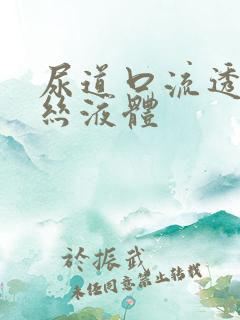 尿道口流透
絲液體
於振武
未經同意禁止轉載